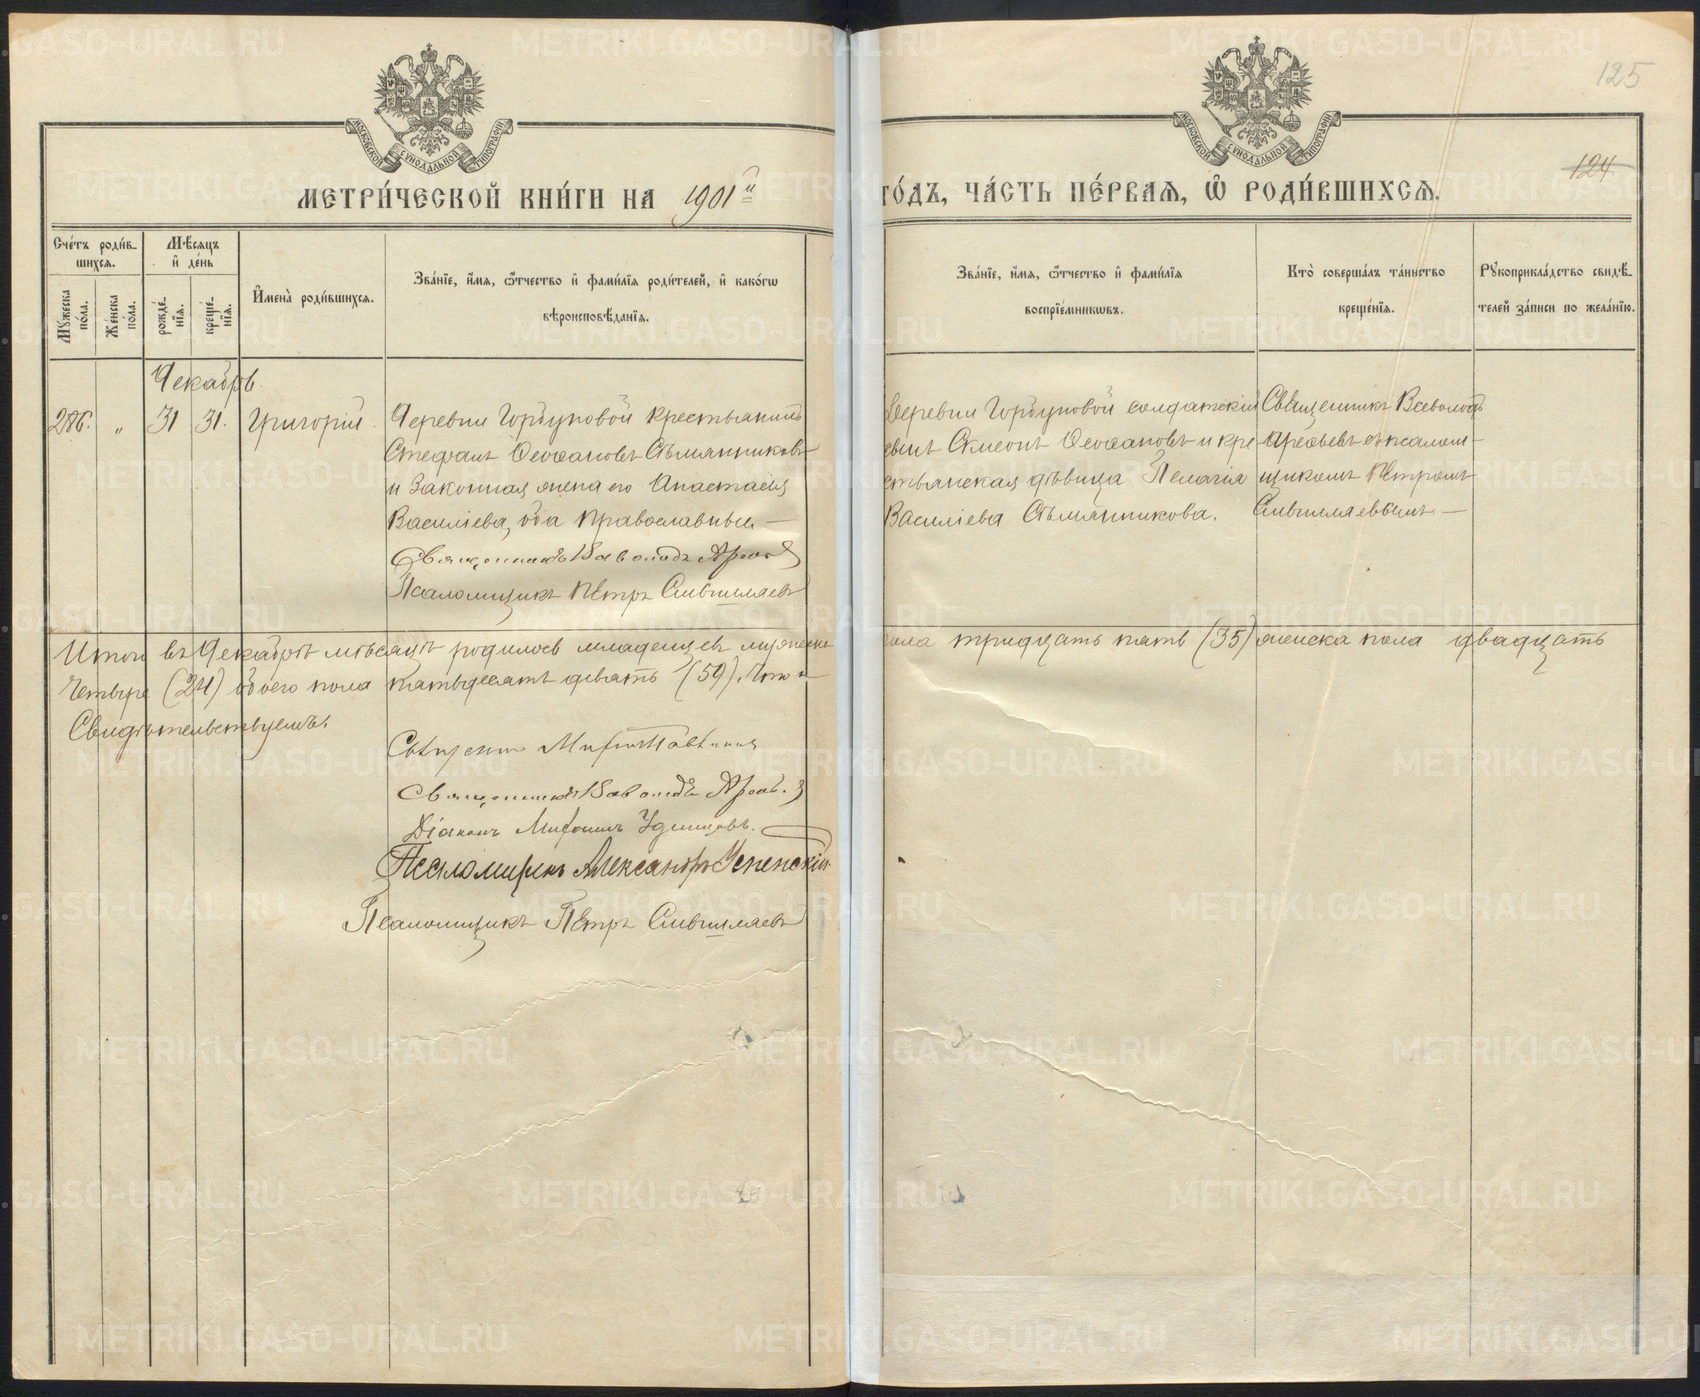 125
124
МОСКОВСКОЙ СѴНОДАЛЬНОЙ ТИПОГРАФІИ
МОСКОВСКОЙ СѴНОДАЛЬНОЙ ТИПОГРАФІИ
МЕТРИ́ЧЕСКОЙ КНИ́ГИ НА 1901й
ГО́ДЪ, ЧА́СТЬ ПЕ́РВАЯ, Ѿ РОДИ́ВШИХСЯ.
Счéтъ роди́в-
шихся.
Мѣ́сяцъ
и҆ де́нь
Мꙋ́жеска
по́ла.
Же́нска
по́ла.
рожде́-
нїя.
креще́-
нїя.
И҆мена̀ роди́вшихся.
Зва́нїе, и҆́мя, ѻ҆́тчество и҆ фами́лїя роди́телей, и҆ како́гѡ
вѣроисповѣ́данїя.
Зва́нїе, и҆́мя, ѻ҆́тчество и҆ фами́лїя
воспрїе́мникѡвъ.
Кто̀ соверша́лъ та́инство
креще́нїя.
Рꙋкоприкла́дство свидѣ́-
телей за́писи по жела́нїю.
Декабрь.
286. „ 31 31. Григорій.
Деревни Горбуновой крестьянинъ
Стефанъ Ѳеофановъ Сѣмянниковъ
и законная жена его Анастасія
Василіева, оба православные. —
Священникъ Всеволодъ
Псаломщикъ Петръ
Деревни Горбуновой солдатскій
сынъ Симеонъ Ѳеофановъ и кре-
стьянская дѣвица Пелагія
Василіева Сѣмянникова.
Священникъ Всеволодъ
Арефьевъ съ псалом-
щикомъ Петромъ
Итого въ Декабрѣ мѣсяцѣ родилось младенцевъ мужеска
пола тридцать пять (35) женска пола двадцать
четыре (24) обоего пола пятьдесятъ девять (59). Что и
Свидѣтельствуемъ.
Священникъ
Священникъ Всеволодъ
Діаконъ Удинцовъ.
Псаломщикъ Александръ Успенскій
Псаломщикъ Петръ
METRIKI.GASO-URAL.RU